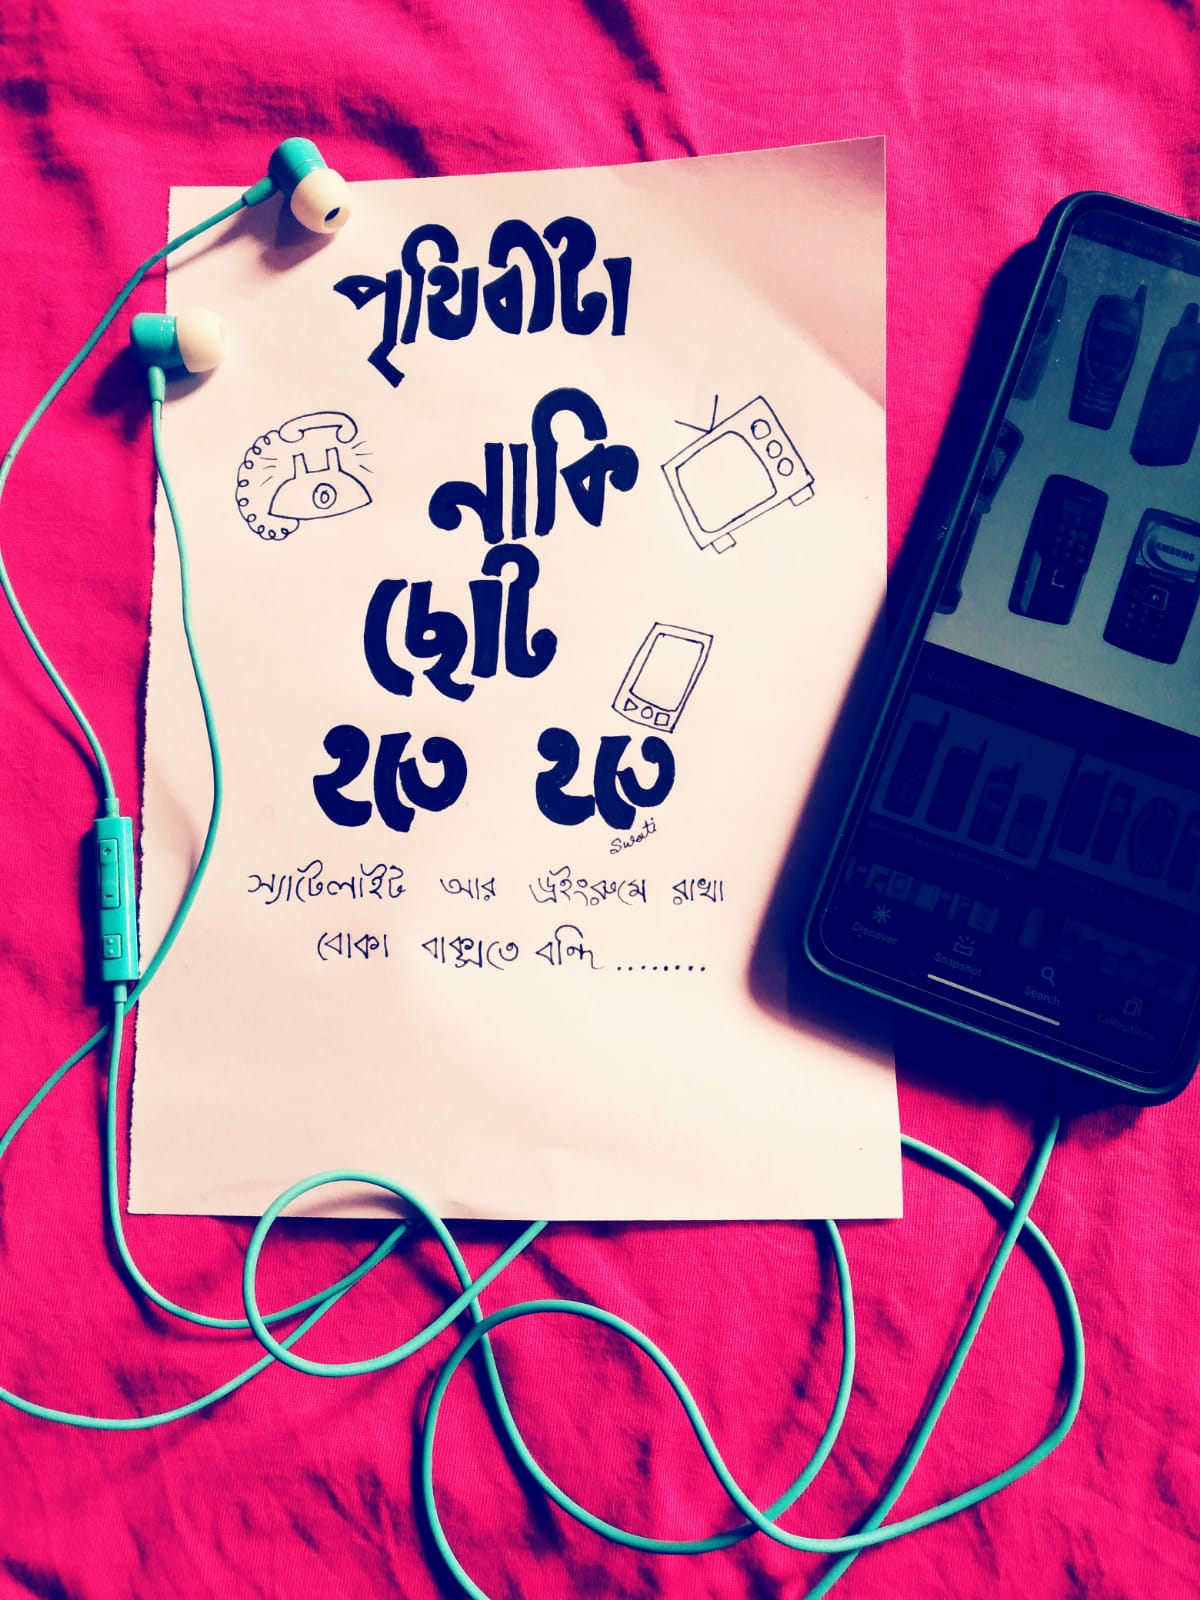 পৃথিবীটা
নাকি
ছোট
হতে হতে
Swati
স্যাটেলাইট আর ড্রইংরুমে রাখা
বোকা বাক্সতে বন্দি ........
SAMSUNG
Discover
Snapshot
Search
Collections